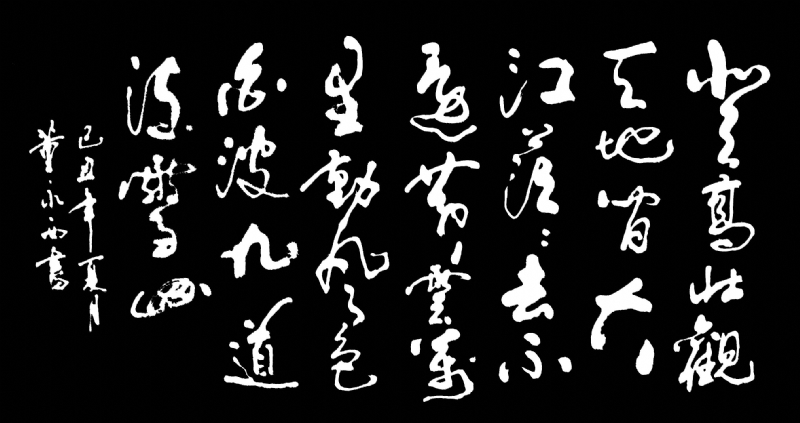 登高壯觀
天地間大
江茫〻去不
還黄雲萬
里動風色
白波九道
流雪山
己丑年夏月
董永書